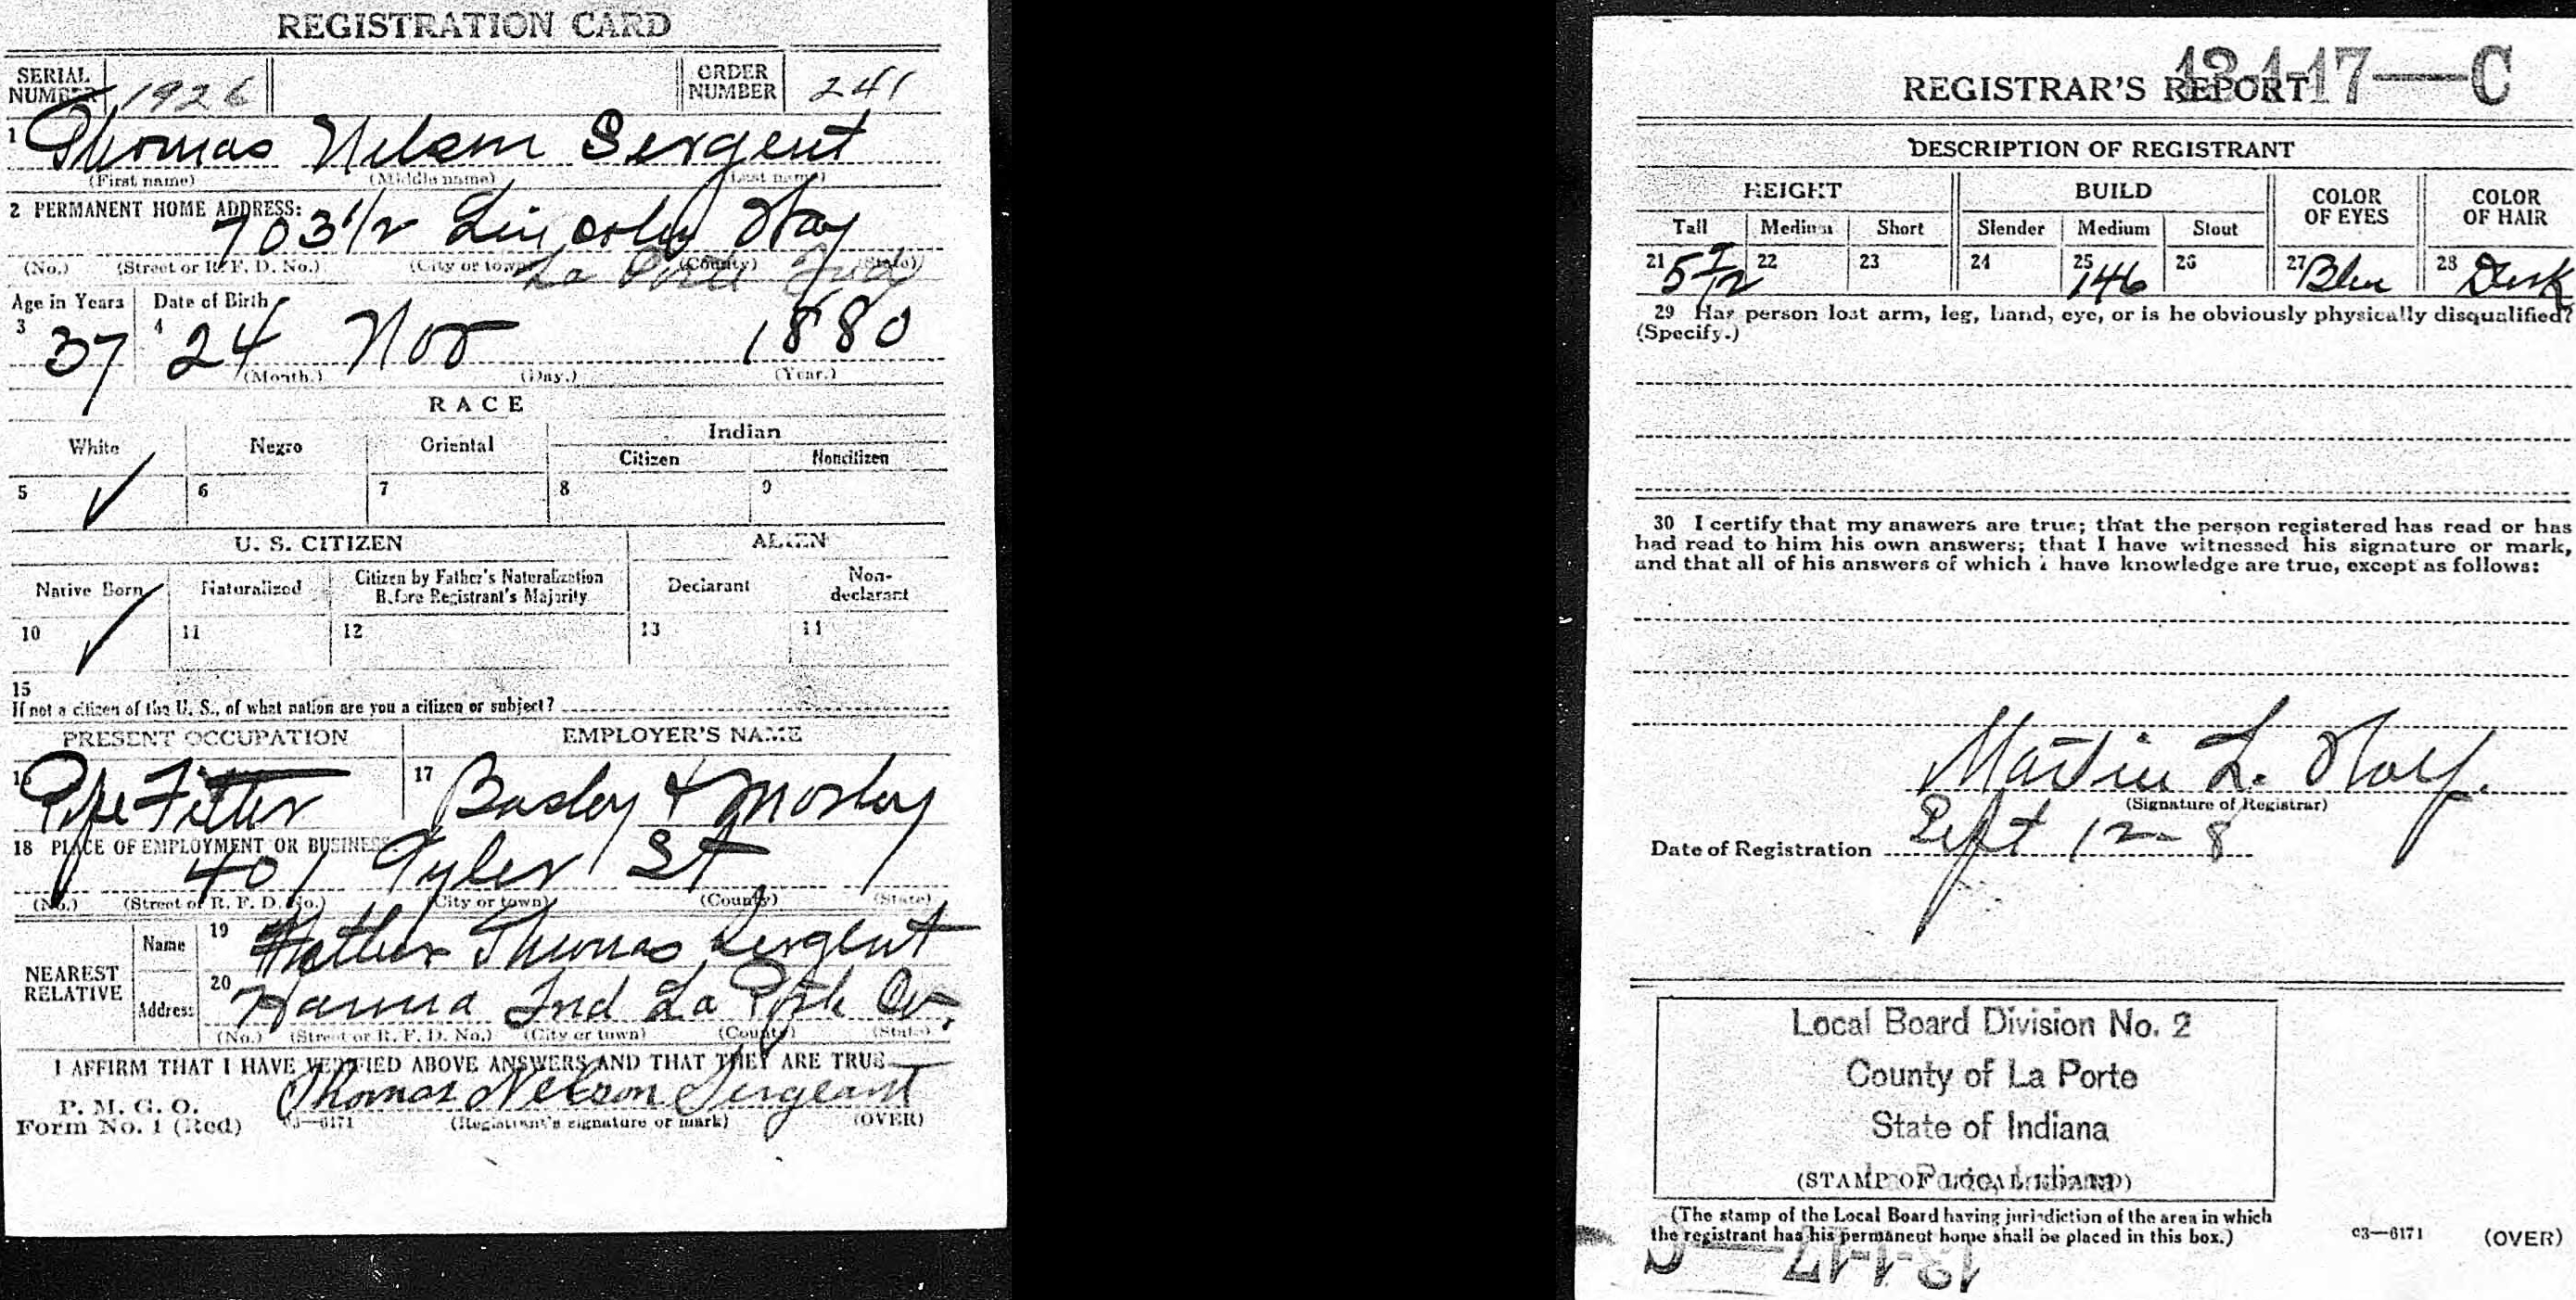 REGISTRATION CARD
SERIAL NUMBER 1926 ORDER NUMBER 241
1 Thomas Nelson Sergent
(First name) (Middle name) (Last name)
2 PERMANENT HOME ADDRESS:
703 1/2 Lincoln Way
(No.) (Street or R. F. D. No.) (City or town) (County) (State)
La Porte Ind
Age in Years Date of Birth
3 37 4 24 Nov 1880
(Month.) (Day.) (Year.)
RACE
White Negro Oriental Indian
Citizen Noncitizen
5 ✓ 6 7 8 9
U. S. CITIZEN ALIEN
Native Born Naturalized Citizen by Father's Naturalization Before Registrant's Majority Declarant Non-declarant
10 ✓ 11 12 13 14
15
If not a citizen of the U. S., of what nation are you a citizen or subject?
PRESENT OCCUPATION EMPLOYER'S NAME
16 Pipe Fitter 17 & Mosley
18 PLACE OF EMPLOYMENT OR BUSINESS:
401 Tyler St
(No.) (Street or R. F. D. No.) (City or town) (County) (State)
NEAREST RELATIVE
Name 19 Father Thomas Sergent
Address 20 Hanna Ind La Porte Co.
(No.) (Street or R. F. D. No.) (City or town) (County) (State)
I AFFIRM THAT I HAVE VERIFIED ABOVE ANSWERS AND THAT THEY ARE TRUE
P. M. G. O.
Form No. 1 (Red) 03—6171 Thomas Nelson Sergeant
(Registrant's signature or mark) (OVER)
REGISTRAR'S REPORT
13-1-17—C
DESCRIPTION OF REGISTRANT
HEIGHT BUILD COLOR OF EYES COLOR OF HAIR
Tall Medium Short Slender Medium Stout
21 5 7/12 22 23 24 25 146 26 27 Blue 28 Dark
29 Has person lost arm, leg, hand, eye, or is he obviously physically disqualified?
(Specify.)
30 I certify that my answers are true; that the person registered has read or has
had read to him his own answers; that I have witnessed his signature or mark,
and that all of his answers of which I have knowledge are true, except as follows:
Martin L.
(Signature of Registrar)
Date of Registration Sept 12 - 8
Local Board Division No. 2
County of La Porte
State of Indiana
La Porte, Indiana
(STAMP OF LOCAL BOARD)
(The stamp of the Local Board having jurisdiction of the area in which
the registrant has his permanent home shall be placed in this box.)
03—6171 (OVER)
13-1-17—C